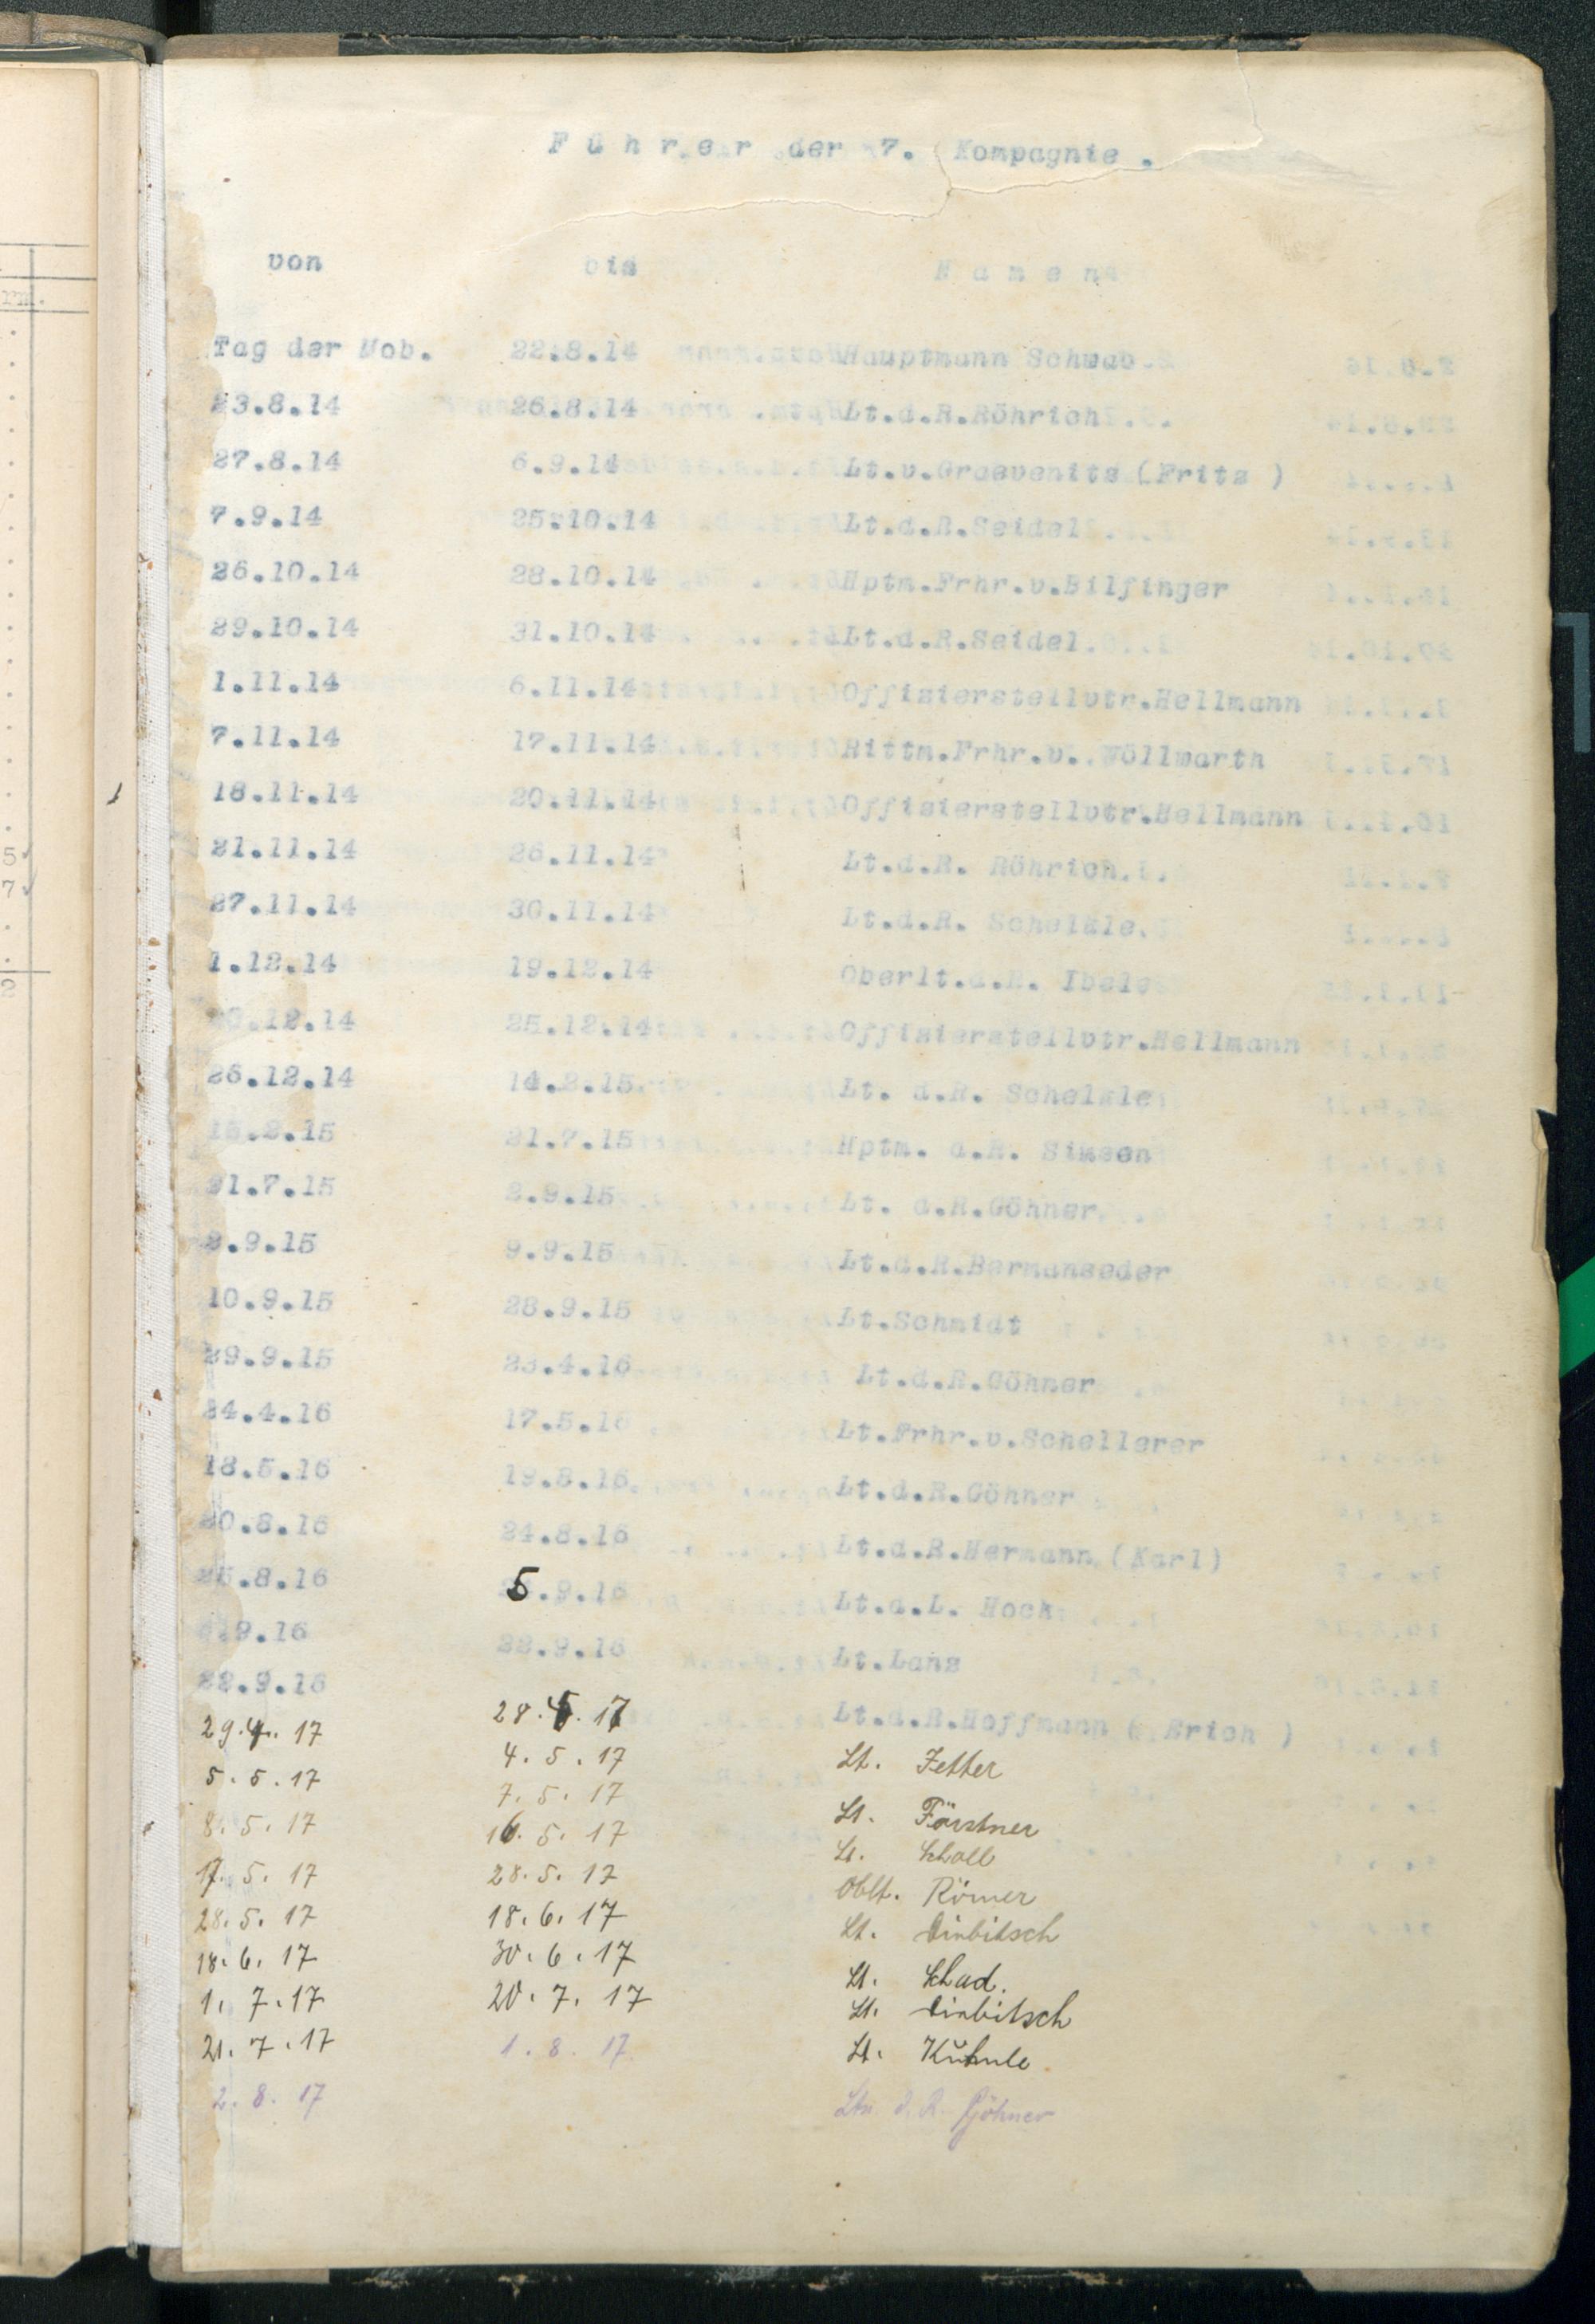 Führer der 7. Kompagnie.
von bis Namen
Tag der Mob. 22.8.14 Hauptmann Schwab
23.8.14 26.8.14 Lt.d.R.Röhrich
27.8.14 6.9.14 Lt.v.Graevenitz (Fritz )
7.9.14 25.10.14 Lt.d.R.Seidel
26.10.14 28.10.14 Hptm.Frhr.v.Bilfinger
29.10.14 31.10.14 Lt.d.R.Seidel
1.11.14 6.11.14 Offizierstellvtr.Hellmann
7.11.14 17.11.14 Rittm.Frhr.v. Wöllwarth
18.11.14 20.11.14 Offizierstellvtr.Hellmann
21.11.14 26.11.14 Lt.d.R. Röhrich
27.11.14 30.11.14 Lt.d.R. Schelkle
1.12.14 19.12.14 Oberlt.d.R. Ibele
20.12.14 25.12.14 Offizierstellvtr.Hellmann
26.12.14 14.2.15 Lt. d.R. Schelkle
15.2.15 21.7.15 Hptm. d.R. Simson
21.7.15 2.9.15 Lt. d.R.Göhner
9.15 9.9.15 Lt.d.R.Bermanseder
10.9.15 28.9.15 Lt.Schmidt
29.9.15 23.4.16 Lt.d.R.Göhner
24.4.16 17.5.16 Lt.Frhr.v.Schellerer
18.5.16 19.8.16 Lt.d.R.Göhner
20.8.16 24.8.16 Lt.d.R.Hermann (Karl)
25.8.16 5.9.16 Lt.d.L. Hock
9.16 22.9.16 Lt.Lanz
22.9.16 28.4.17 Lt.d.R.Hoffmann ( Erich )
29.4.17 4.5.17 Lt. Zetter
5.5.17 7.5.17 Lt. Förstner
8.5.17 16.5.17 Lt. Scholl
17.5.17 28.5.17 Oblt. Römer
28.5.17 18.6.17 Lt. Dinbitsch
18.6.17 30.6.17 Lt. Schad.
1.7.17 20.7.17 Lt. Dinbitsch
21.7.17 1.8.17. Lt. Kühnle
2.8.17 Ltn. d. R. Göhner